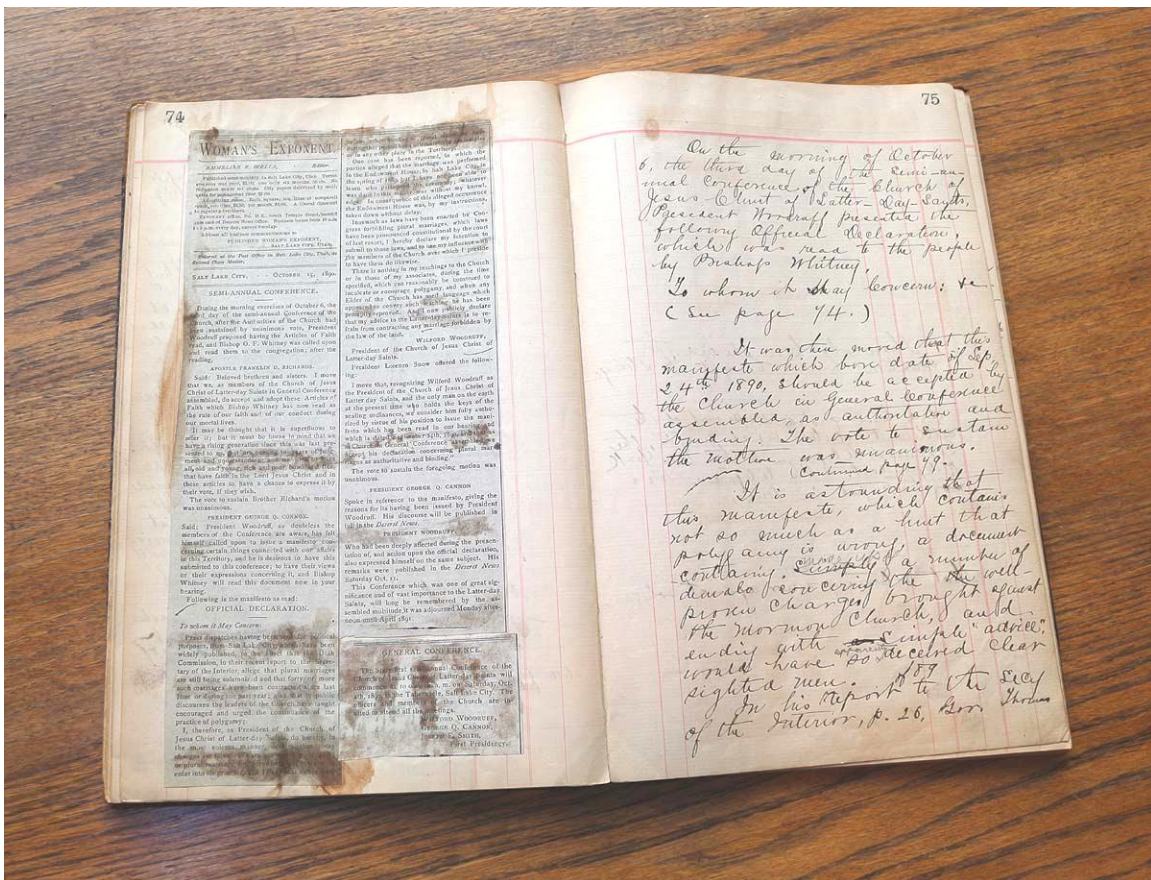 74
WOMAN'S EXPONENT.
EMMELINE B. WELLS, Editor.
PUBLISHER WOMAN'S EXPONENT,
SALT LAKE CITY, UTAH.
SALT LAKE CITY, - - OCTOBER 15, 1890.
SEMI-ANNUAL CONFERENCE.
During the morning exercises of October 6, the
third day of the semi-annual Conference of the
Church, after the Authorities of the Church had
been sustained by unanimous vote, President
Woodruff proposed having the Articles of Faith
read, and Bishop O. F. Whitney was called upon
and read them to the congregation; after the
reading,
APOSTLE FRANKLIN D. RICHARDS
Said: Beloved brethren and sisters. I move
that we, as members of the Church of Jesus
Christ of Latter-day Saints in General Conference
assembled, do accept and adopt these Articles of
Faith which Bishop Whitney has now read as
the rule of our faith and of our conduct during
our mortal lives.
It may be thought that it is superfluous to
offer it; but it must be borne in mind that we
have a rising generation since this was last pre-
sented to us,
all, old and young, rich and poor,
that have faith in the Lord Jesus Christ and in
these articles to have a chance to express it by
their vote, if they wish.
The vote to sustain Brother Richard's motion
was unanimous.
PRESIDENT GEORGE Q. CANNON.
Said: President Woodruff, as doubtless the
members of the Conference are aware, has felt
himself called upon to issue a manifesto con-
cerning certain things connected with our affairs
in this Territory, and he is desirous to have this
submitted to this conference; to have their views
or their expressions concerning it, and Bishop
Whitney will read this document now in your
hearing.
Following is the manifesto as read:
OFFICIAL DECLARATION.
To whom it May Concern:
Press dispatches having been sent for political
purposes, from Salt Lake City, have been
widely published, to the effect that the Utah
Commission, in their recent report to the Secre-
tary of the Interior, allege that plural marriages
are still being solemnized and that forty or more
such marriages have been contracted
discourses the leaders of the Church have taught
encouraged and urged the continuance of the
practice of polygamy;
I, therefore, as President of the Church of
Jesus Christ of Latter-day Saints, do hereby, in
the most solemn manner,
or in any other place in the Territory.
One case has been reported, in which the
parties alleged that the marriage was performed
in the Endowment House, in Salt Lake City, in
the spring of 1889, but I have not been able to
learn who performed the ceremony; whatever
was done in this matter was without my knowl-
edge. In consequence of this alleged occurrence
the Endowment House was, by my instructions,
taken down without delay.
Inasmuch as laws have been enacted by Con-
gress forbidding plural marriages, which laws
have been pronounced constitutional by the court
of last resort, I hereby declare my intention to
submit to those laws, and to use my influence with
the members of the Church over which I preside
to have them do likewise.
There is nothing in my teachings to the Church
or in those of my associates, during the time
specified, which can reasonably be construed to
inculcate or encourage polygamy, and when any
Elder of the Church has used language which
appeared to convey such teaching he has been
promptly reproved. And I now publicly declare
that my advice to the Latter-day Saints is to re-
frain from contracting any marriage forbidden by
the law of the land.
WILFORD WOODRUFF,
President of the Church of Jesus Christ of
Latter-day Saints.
President Lorenzo Snow offered the follow-
ing:
I move that, recognizing Wilford Woodruff as
the President of the Church of Jesus Christ of
Latter-day Saints, and the only man on the earth
at the present time who holds the keys of the
sealing ordinances, we consider him fully autho-
rized by virtue of his position to issue the mani-
festo which has been read in our hearing and
which is dated September 24th,
a Church in General Conference
his declaration concerning plural mar-
riages as authoritative and binding."
The vote to sustain the foregoing motion was
unanimous.
PRESIDENT GEORGE Q. CANNON
Spoke in reference to the manifesto, giving the
reasons for its having been issued by President
Woodruff. His discourse will be published in
full in the Deseret News.
PRESIDENT WOODRUFF
Who had been deeply affected during the presen-
tation of, and action upon the official declaration,
also expressed himself on the same subject. His
remarks were published in the Deseret News
Saturday Oct. 11.
This Conference, which was one of great sig-
nificance and of vast importance to the Latter-day
Saints, will long be remembered by the as-
sembled multitude, it was adjourned Monday after-
noon until April 1891.
GENERAL CONFERENCE.
The Annual Conference of the
Church of Jesus Christ of Latter-day Saints will
Tabernacle, Salt Lake City. The
officers and members of the Church are in-
vited to attend all the meetings.
WILFORD WOODRUFF,
GEORGE Q. CANNON,
JOSEPH F. SMITH,
First Presidency.
75
On the morning of October
6, the third day of the Semi-an-
nual Conference of the Church of
Jesus Christ of Latter-Day-Saints,
President Woodruff presented the
following Official Declaration,
which was read to the people
by Bishop Whitney.
To whom it May Concern: &c
(See page 74.)
It was then moved that this
manifesto which bore date of Sep.
24th 1890, should be accepted by
the Church in General Conference
assembled, as authoritative and
binding. The vote to sustain
the motion was unanimous.
Continued page 79.
It is astounding that
this manifesto, which contains
not so much as a hint that
polygamy is wrong, a document
containing a number of
denials concerning the well-
proven charges brought against
the Mormon Church, and
ending with simple "advice",
would have so deceived clear
sighted men.
In his report to the Secy
of the Interior, p. 26, Gov Thomas